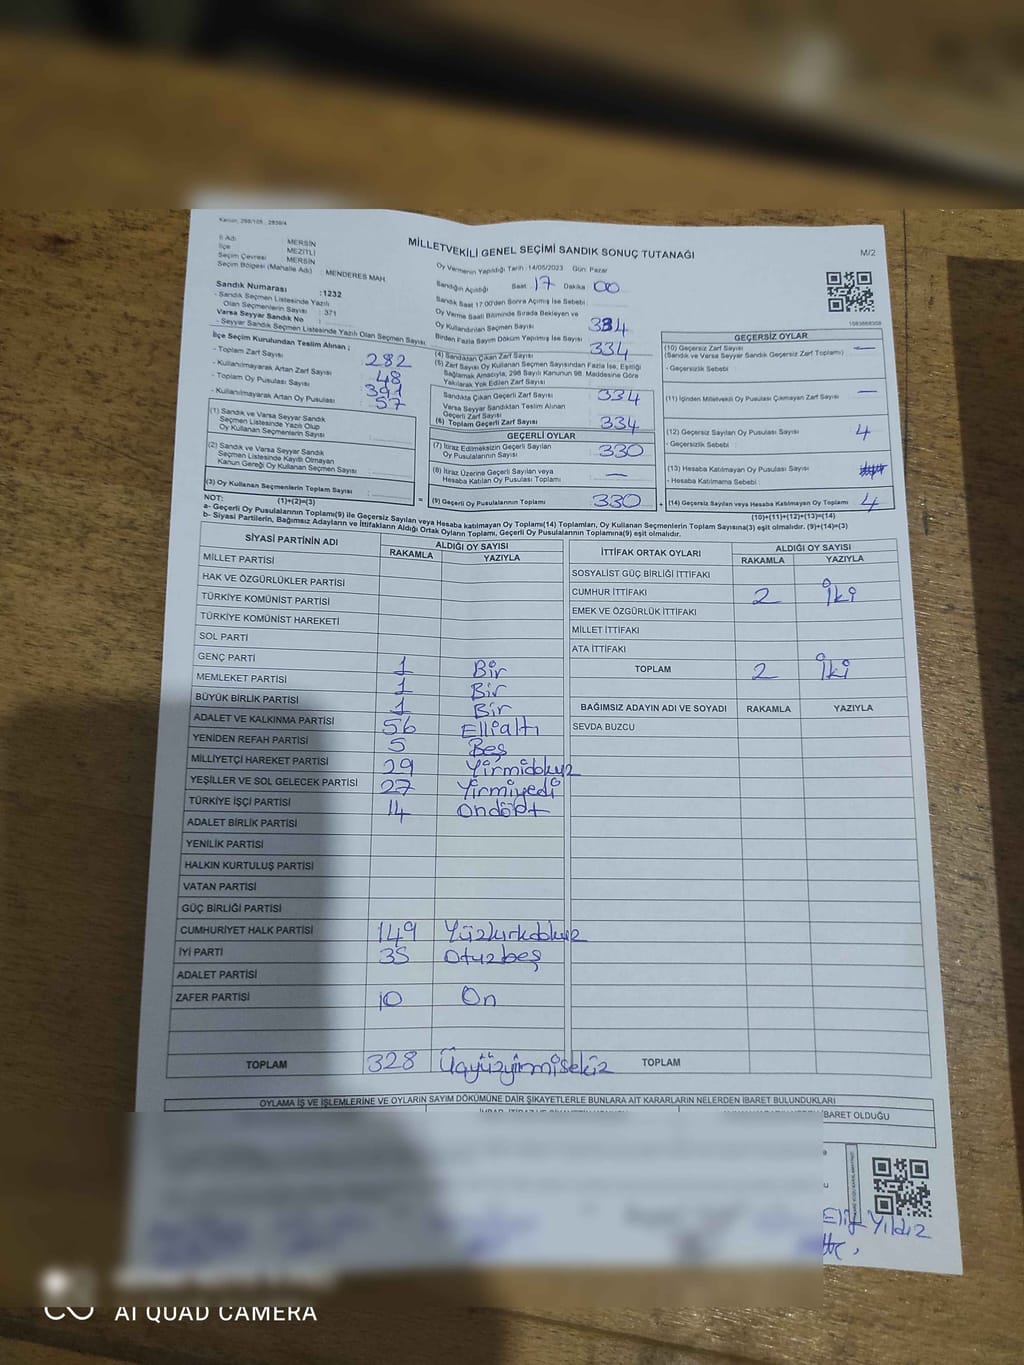 Kanun; 298/105 , 2839/4
İl Adı : MERSİN
İlçe : MEZİTLİ
Seçim Çevresi : MERSİN
Seçim Bölgesi (Mahalle Adı) : MENDERES MAH.
MİLLETVEKİLİ GENEL SEÇİMİ SANDIK SONUÇ TUTANAĞI
M/2
Oy Vermenin Yapıldığı Tarih :14/05/2023 Gün: Pazar
Sandığın Açıldığı Saat : 17 Dakika : 00
Sandık Saat 17:00'den Sonra Açılmış İse Sebebi :
Sandık Numarası :1232
- Sandık Seçmen Listesinde Yazılı
Olan Seçmenlerin Sayısı : 371
Varsa Seyyar Sandık No :
- Seyyar Sandık Seçmen Listesinde Yazılı Olan Seçmen Sayısı:
Oy Verme Saati Bitiminde Sırada Bekleyen ve
Oy Kullandırılan Seçmen Sayısı : 334
Birden Fazla Sayım Döküm Yapılmış İse Sayısı :
İlçe Seçim Kurulundan Teslim Alınan ;
- Toplam Zarf Sayısı : 282
- Kullanılmayarak Artan Zarf Sayısı : 48
- Toplam Oy Pusulası Sayısı : 391
- Kullanılmayarak Artan Oy Pusulası : 57
(1) Sandık ve Varsa Seyyar Sandık
Seçmen Listesinde Yazılı Olup
Oy Kullanan Seçmenlerin Sayısı :
(2) Sandık ve Varsa Seyyar Sandık
Seçmen Listesinde Kayıtlı Olmayan
Kanun Gereği Oy Kullanan Seçmen Sayısı :
(3) Oy Kullanan Seçmenlerin Toplam Sayısı :
(1)+(2)=(3)
(4) Sandıktan Çıkan Zarf Sayısı : 334
(5) Zarf Sayısı Oy Kullanan Seçmen Sayısından Fazla İse, Eşitliği
Sağlamak Amacıyla; 298 Sayılı Kanunun 98. Maddesine Göre
Yakılarak Yok Edilen Zarf Sayısı :
Sandıkta Çıkan Geçerli Zarf Sayısı : 334
Varsa Seyyar Sandıktan Teslim Alınan
Geçerli Zarf Sayısı :
(6) Toplam Geçerli Zarf Sayısı : 334
GEÇERLİ OYLAR
(7) İtiraz Edilmeksizin Geçerli Sayılan
Oy Pusulalarının Sayısı : 330
(8) İtiraz Üzerine Geçerli Sayılan veya
Hesaba Katılan Oy Pusulası Toplamı : —
= (9) Geçerli Oy Pusulalarının Toplamı : 330
1083868308
GEÇERSİZ OYLAR
(10) Geçersiz Zarf Sayısı : —
(Sandık ve Varsa Seyyar Sandık Geçersiz Zarf Toplamı)
- Geçersizlik Sebebi :
(11) İçinden Milletvekili Oy Pusulası Çıkmayan Zarf Sayısı : —
(12) Geçersiz Sayılan Oy Pusulası Sayısı : 4
- Geçersizlik Sebebi :
(13) Hesaba Katılmayan Oy Pusulası Sayısı :
- Hesaba Katılmama Sebebi :
+ (14) Geçersiz Sayılan veya Hesaba Katılmayan Oy Toplamı : 4
(10)+(11)+(12)+(13)=(14)
NOT:
a- Geçerli Oy Pusulalarının Toplamı(9) ile Geçersiz Sayılan veya Hesaba katılmayan Oy Toplamı(14) Toplamları, Oy Kullanan Seçmenlerin Toplam Sayısına(3) eşit olmalıdır. (9)+(14)=(3)
b- Siyasi Partilerin, Bağımsız Adayların ve İttifakların Aldığı Ortak Oyların Toplamı, Geçerli Oy Pusulalarının Toplamına(9) eşit olmalıdır.
SİYASİ PARTİNİN ADI ALDIĞI OY SAYISI
RAKAMLA YAZIYLA
MİLLET PARTİSİ
HAK VE ÖZGÜRLÜKLER PARTİSİ
TÜRKİYE KOMÜNİST PARTİSİ
TÜRKİYE KOMÜNİST HAREKETİ
SOL PARTİ
GENÇ PARTİ 1 Bir
MEMLEKET PARTİSİ 1 Bir
BÜYÜK BİRLİK PARTİSİ 1 Bir
ADALET VE KALKINMA PARTİSİ 56 Ellialtı
YENİDEN REFAH PARTİSİ 5 Beş
MİLLİYETÇİ HAREKET PARTİSİ 29 Yirmidokuz
YEŞİLLER VE SOL GELECEK PARTİSİ 27 Yirmiyedi
TÜRKİYE İŞÇİ PARTİSİ 14 Ondört
ADALET BİRLİK PARTİSİ
YENİLİK PARTİSİ
HALKIN KURTULUŞ PARTİSİ
VATAN PARTİSİ
GÜÇ BİRLİĞİ PARTİSİ
CUMHURİYET HALK PARTİSİ 149 Yüzkırkdokuz
İYİ PARTİ 35 Otuzbeş
ADALET PARTİSİ
ZAFER PARTİSİ 10 On
TOPLAM 328 Üçyüzyirmisekiz
İTTİFAK ORTAK OYLARI ALDIĞI OY SAYISI
RAKAMLA YAZIYLA
SOSYALİST GÜÇ BİRLİĞİ İTTİFAKI
CUMHUR İTTİFAKI 2 İki
EMEK VE ÖZGÜRLÜK İTTİFAKI
MİLLET İTTİFAKI
ATA İTTİFAKI
TOPLAM 2 İki
BAĞIMSIZ ADAYIN ADI VE SOYADI RAKAMLA YAZIYLA
SEVDA BUZCU
TOPLAM
OYLAMA İŞ VE İŞLEMLERİNE VE OYLARIN SAYIM DÖKÜMÜNE DAİR ŞİKAYETLERLE BUNLARA AİT KARARLARIN NELERDEN İBARET BULUNDUKLARI
İBARET OLDUĞU
Elif Yıldız
AI QUAD CAMERA